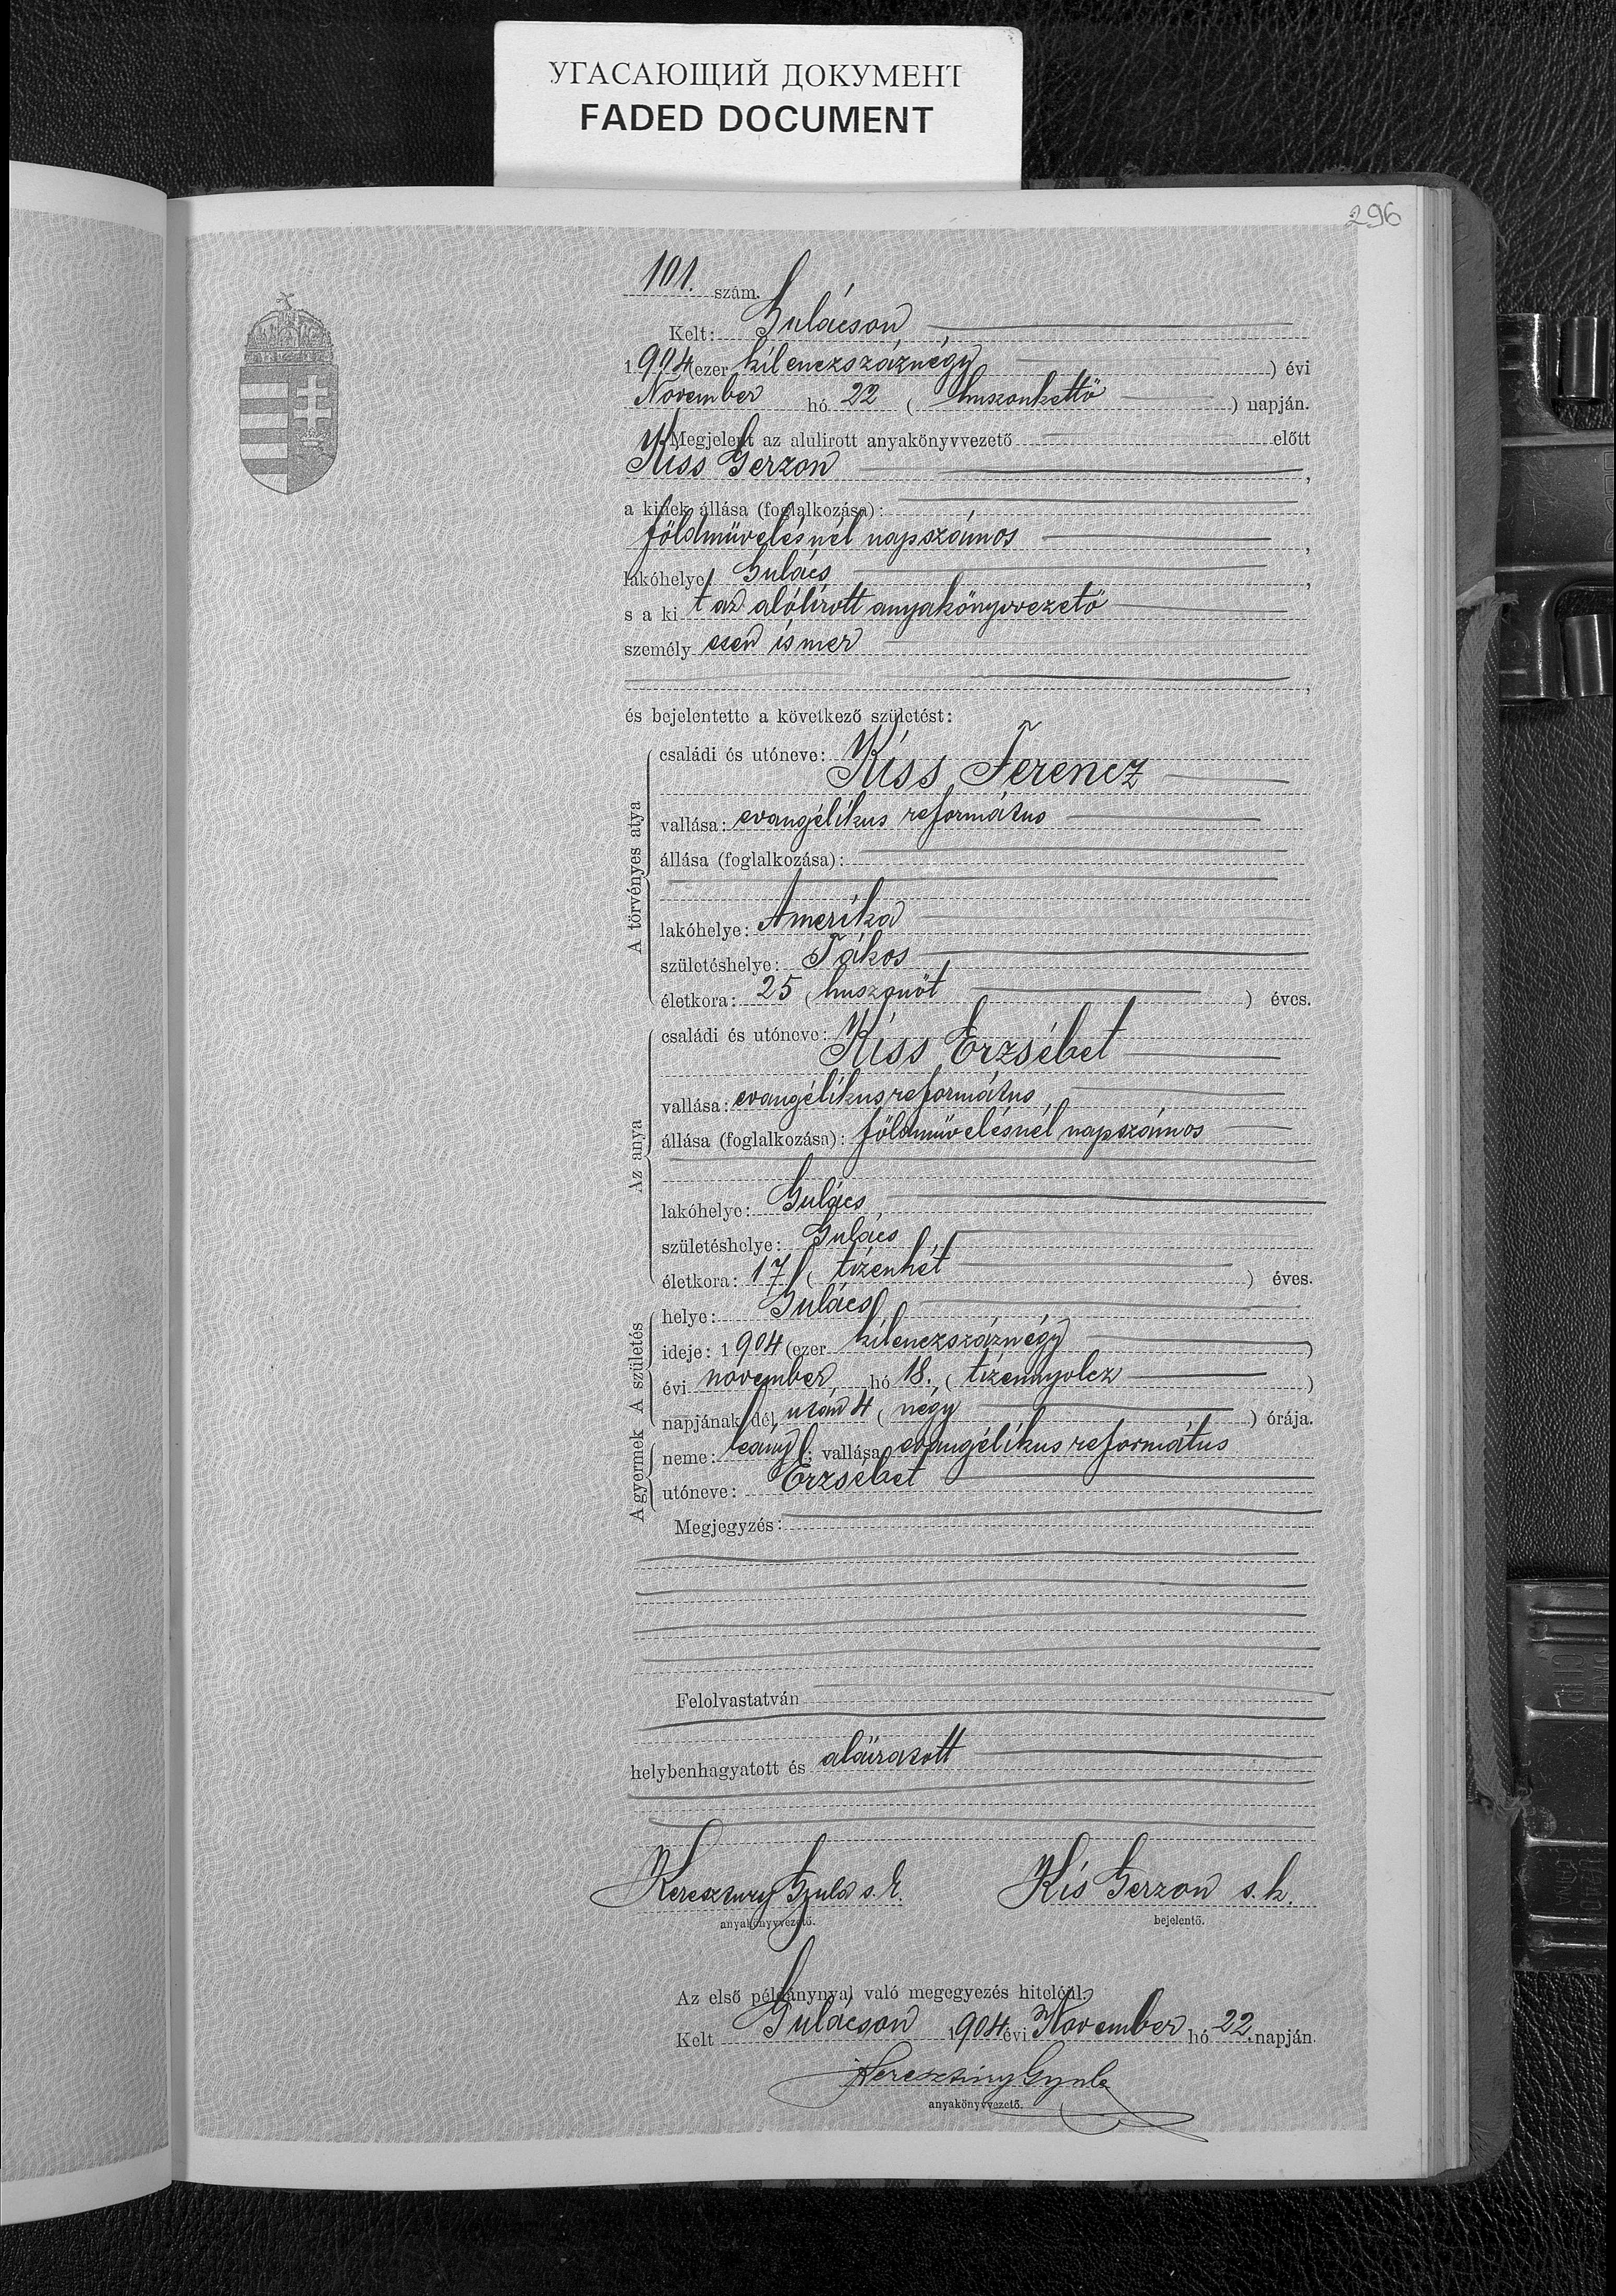 УГАСАЮЩИЙ ДОКУМЕНТ
FADED DOCUMENT
296
101. szám.
Kelt: Gulácson
1904 (ezer kilenczszáznégy ) évi
November hó 22 ( huszonkettö ) napján.
Megjelent az alulirott anyakönyvvezető előtt
Kiss Gerzon ,
a kinek állása (foglalkozása):
földmüvelésnél napszámos ,
lakóhelye Gulács ,
s a ki t az alólírott anyakönyvvezetö
személy esen ismer
,
és bejelentette a következő születést:
A törvényes atya
családi és utóneve: Kiss Ferencz
vallása: evangélikus református
állása (foglalkozása):
lakóhelye: Amerika
születéshelye: Tákos
életkora: 25 ( huszonöt ) éves.
Az anya
családi és utóneve: Kiss Erzsébet
vallása: evangélikus református
állása (foglalkozása): földmüvelésnél napszámos
lakóhelye: Gulács
születéshelye: Gulács
életkora: 17 ( tizenhét ) éves.
A születés
helye: Gulács
ideje: 1904 (ezer kilenczszáznégy )
évi november hó 18. ( tizennyolcz )
napjának dél után 4 ( négy ) órája.
A gyermek
neme: leány ; vallása evangélikus református
utóneve: Erzsébet
Megjegyzés:
Felolvastatván
helybenhagyatott és aláiratott
Keresztury Gyula s. k. Kis Gerzon s. k.
anyakönyvvezető. bejelentő.
Az első példánynyal való megegyezés hiteléül.
Kelt Gulácson 1904 évi November hó 22. napján
Keresztury Gyula
anyakönyvvezető.